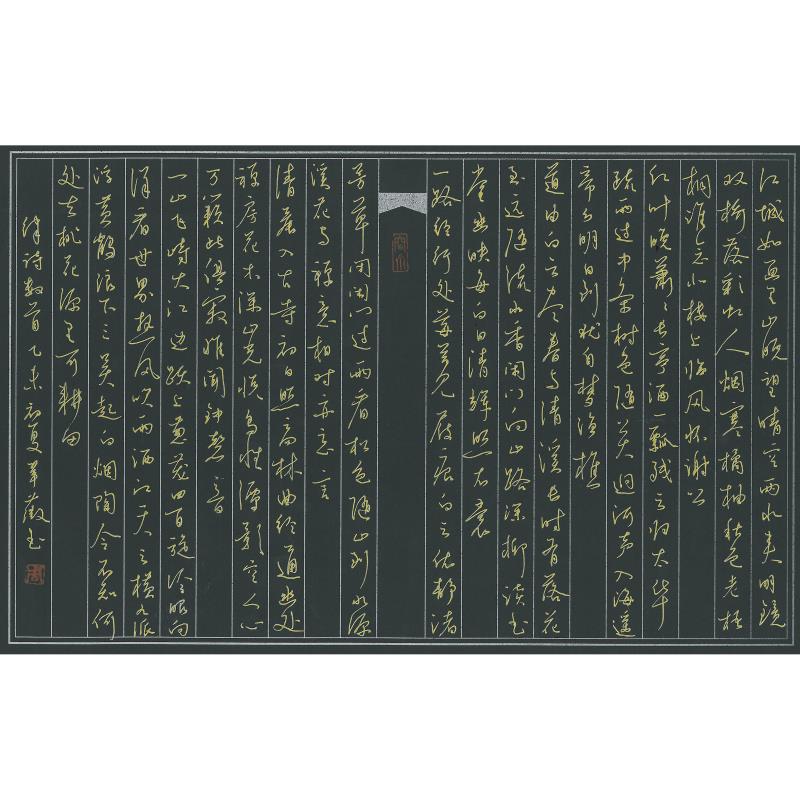 江城如画里山晚望晴空两水夹明镜
双桥落彩虹人烟寒橘柚秋色老梧
桐谁念北楼上临风怀谢公
红叶晚萧萧长亭酒一瓢残云归太华
疏雨过中条树色随关迥河声入海遥
帝乡明日到犹自梦渔樵
道由白云尽春与清溪长时有落花
至远随流水香闲门向山路深柳读书
堂幽映每白日清辉照衣裳
一路经行处莓苔见屐痕白云依静渚
芳草闭闲门过雨看松色随山到水源
溪花与禅意相对亦忘言
清晨入古寺初日照高林曲径通幽处
禅房花木深山光悦鸟性潭影空人心
万籁此俱寂惟闻钟磬音
一山飞峙大江边跃上葱茏四百旋冷眼向
洋看世界热风吹雨洒江天云横九派
浮黄鹤浪下三吴起白烟陶令不知何
处去桃花源里可耕田
律诗数首乙未初夏书